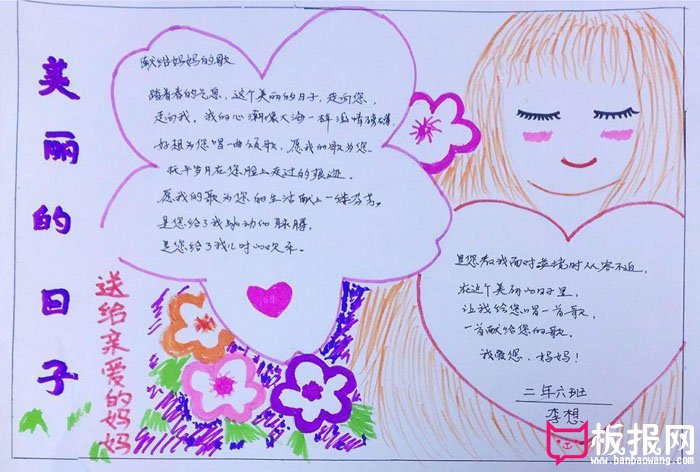 美丽的日子
送给亲爱的妈妈
献给妈妈的歌
踏着春的气息,这个美丽的日子,走向您,
走向我,我的心潮像大海一样激情磅礴.
好想为您唱一曲颂歌,愿我的歌为您
抚平岁月在您脸上走过的痕迹.
愿我的歌为您的生活献上一缕芬芳,
是您给了我跳动的脉膊,
是您给了我儿时的欢乐.
是您教我面对逆境时从容不迫,
在这个美丽的日子里,
让我给您唱一首歌,
一首献给您的歌.
我爱您,妈妈!
二年六班
李想
板报网
www.banbaowang.com